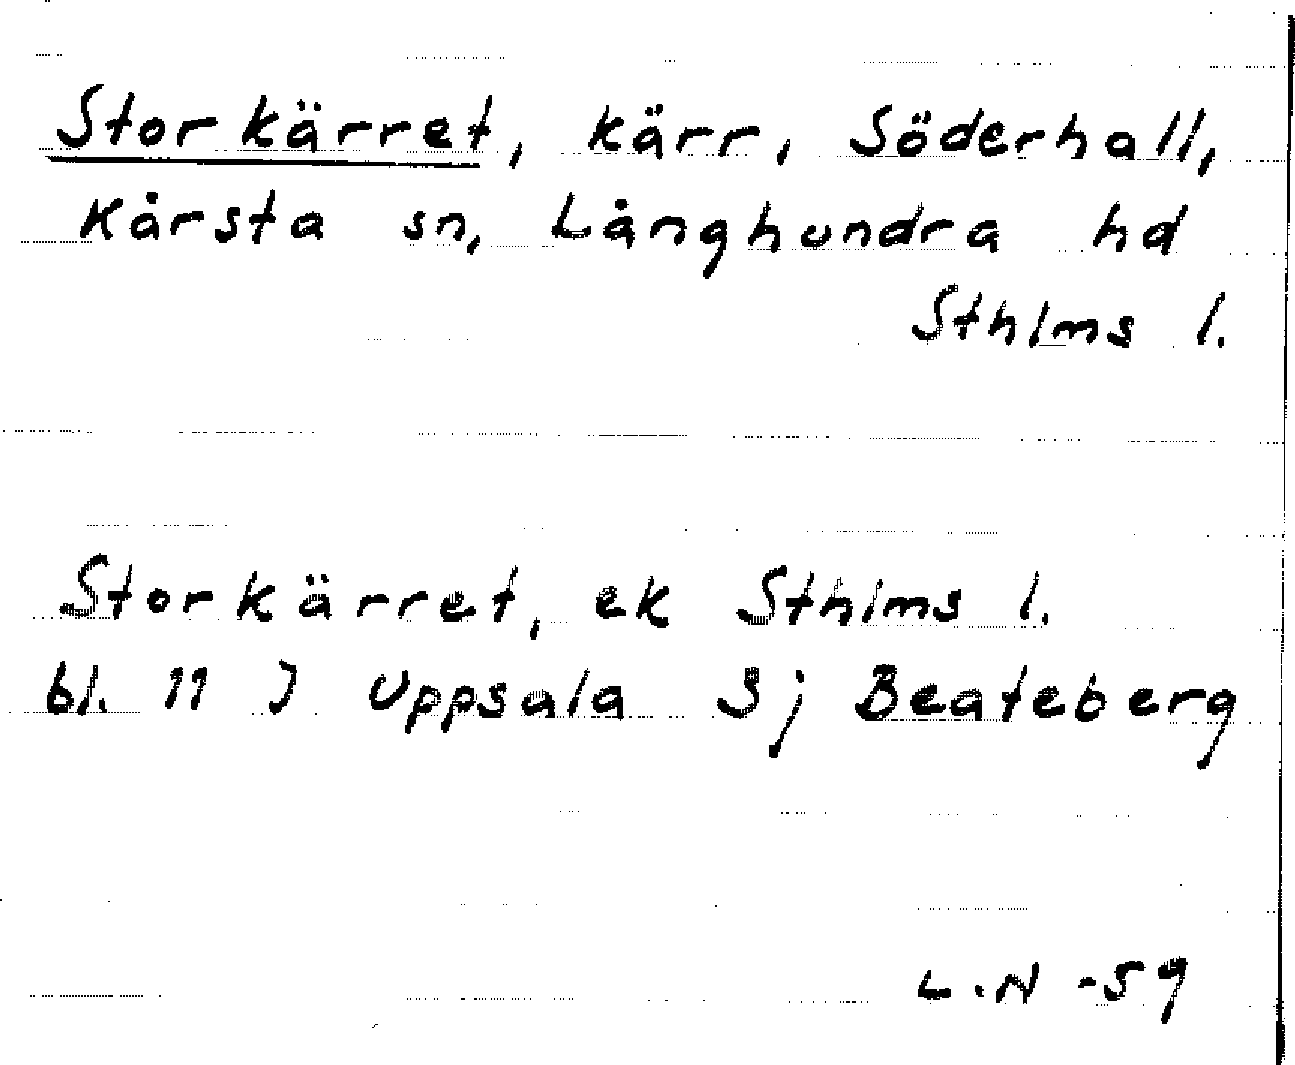 Storkärret, kärr, Söderhall,
Kårsta sn, Långhundra hd
Sthlms l.
Storkärret, ek Sthlms l.
bl. 11 J Uppsala 3j Beateberg
L.N -59